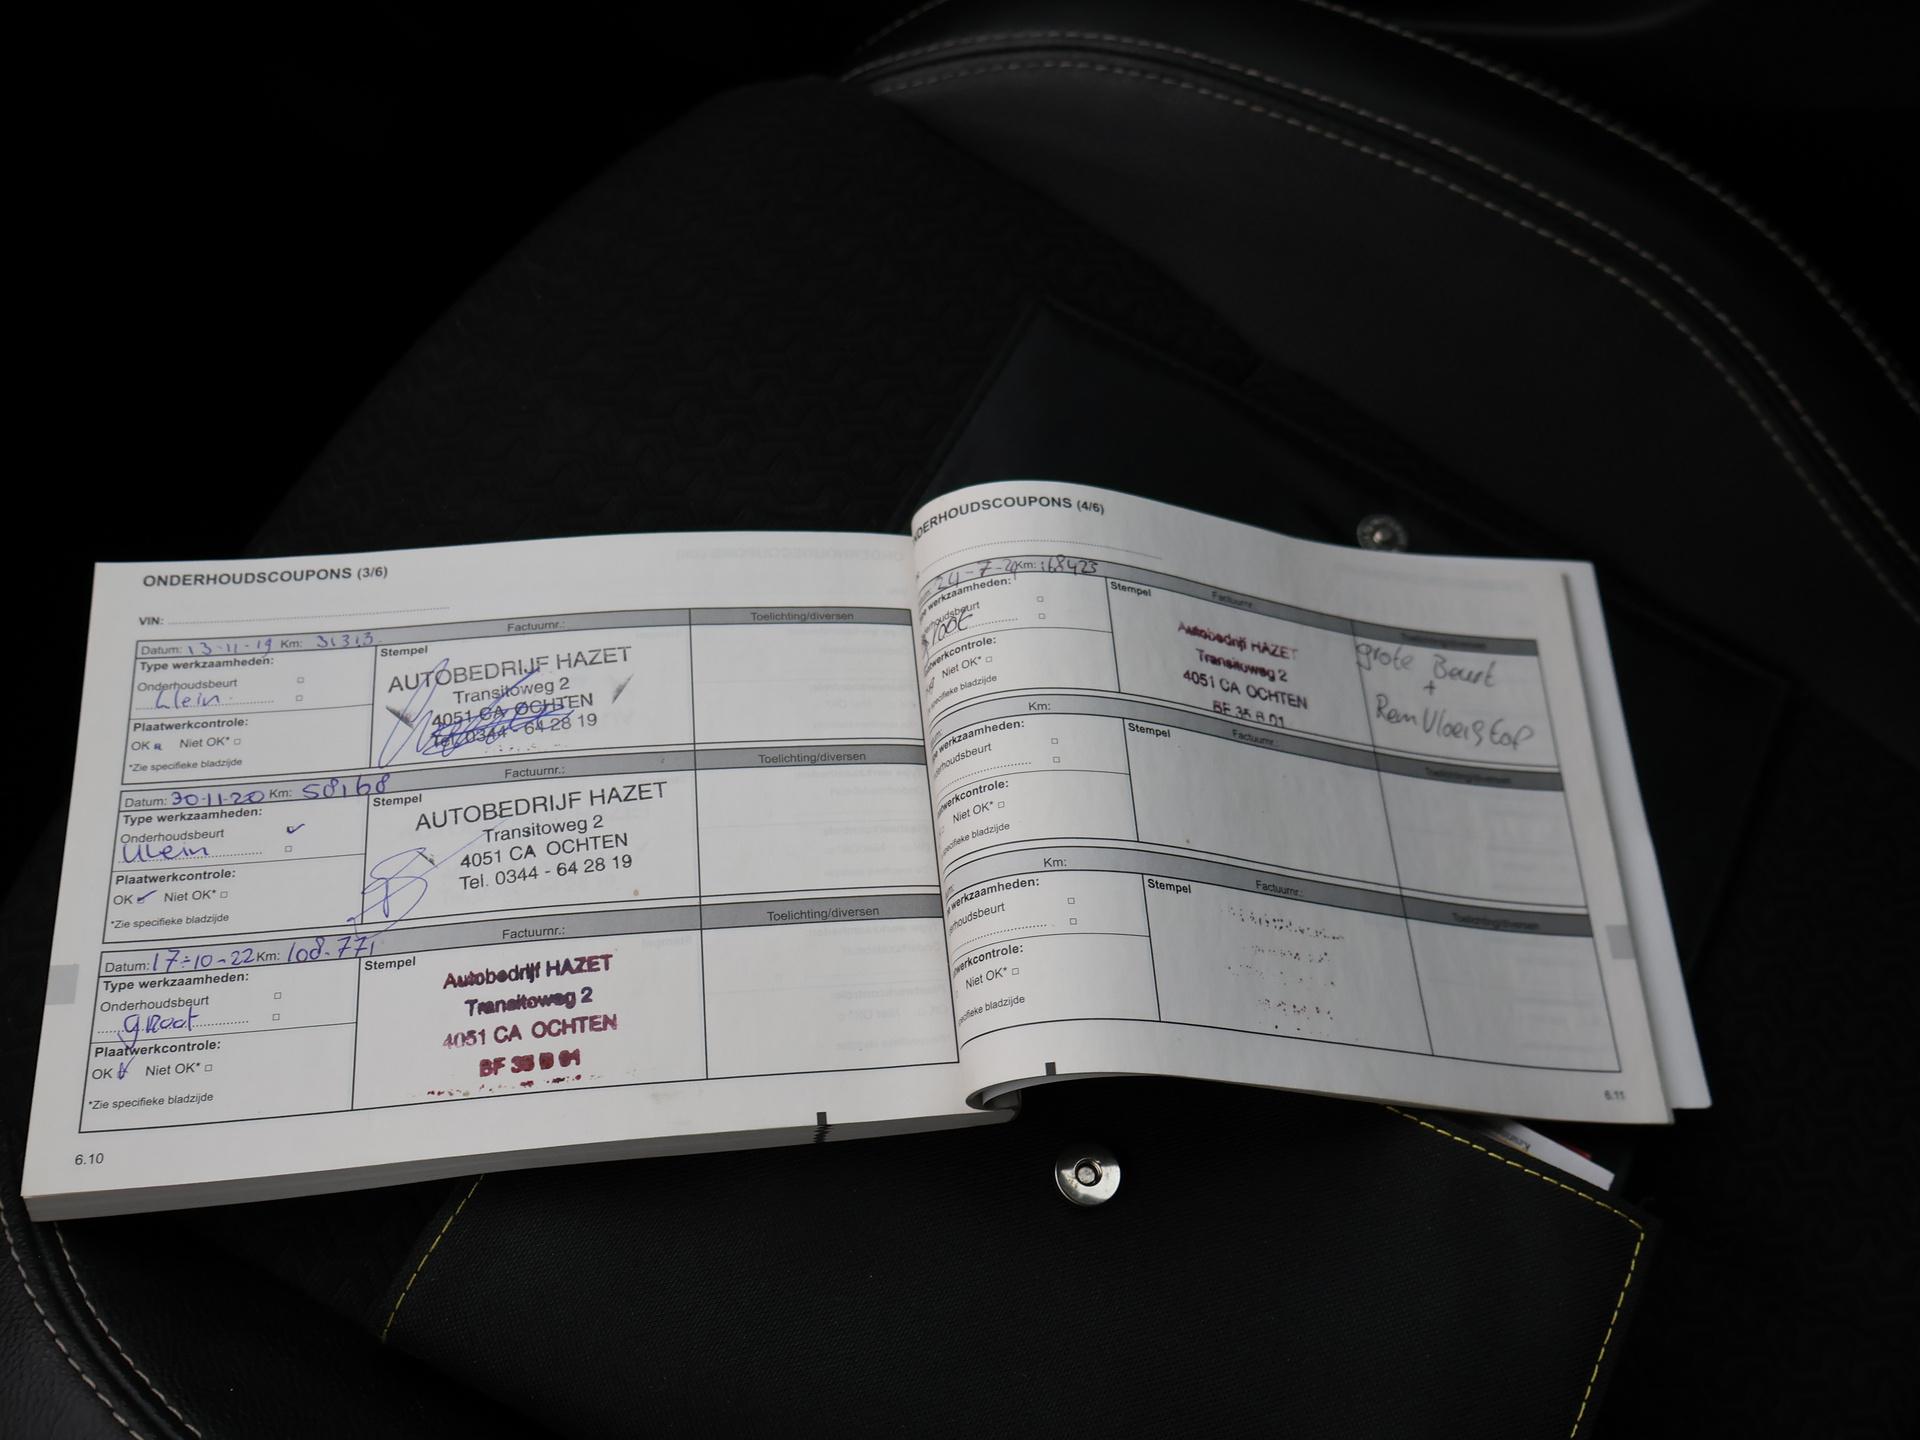 ONDERHOUDSCOUPONS (3/6)
VIN:
Datum: 13-11-19 Km: 31313
Factuurnr.:
Toelichting/diversen
Type werkzaamheden:
Onderhoudsbeurt
klein
Plaatwerkcontrole:
OK Niet OK*
*Zie specifieke bladzijde
Stempel
AUTOBEDRIJF HAZET
Transitoweg 2
4051 CA OCHTEN
Tel. 0344 - 64 28 19
Datum: 30-11-20 Km: 58168
Factuurnr.:
Toelichting/diversen
Type werkzaamheden:
Onderhoudsbeurt
klein
Plaatwerkcontrole:
OK Niet OK*
*Zie specifieke bladzijde
Stempel
AUTOBEDRIJF HAZET
Transitoweg 2
4051 CA OCHTEN
Tel. 0344 - 64 28 19
Datum: 17-10-22 Km: 108.771
Factuurnr.:
Toelichting/diversen
Type werkzaamheden:
Onderhoudsbeurt
groot
Plaatwerkcontrole:
OK Niet OK*
*Zie specifieke bladzijde
Stempel
Autobedrijf HAZET
Transitoweg 2
4051 CA OCHTEN
6.10
NDERHOUDSCOUPONS (4/6)
24-7- Km: 168425
Factuurnr.:
werkzaamheden:
erhoudsbeurt
werkcontrole:
Niet OK*
specifieke bladzijde
Stempel
Autobedrijf HAZET
Transitoweg 2
4051 CA OCHTEN
grote Beurt
+
Rem Vloeistof
Km:
Factuurnr.:
Toelichting/diversen
werkzaamheden:
erhoudsbeurt
werkcontrole:
Niet OK*
specifieke bladzijde
Stempel
Km:
Factuurnr.:
Toelichting/diversen
werkzaamheden:
erhoudsbeurt
werkcontrole:
Niet OK*
specifieke bladzijde
Stempel
6.11